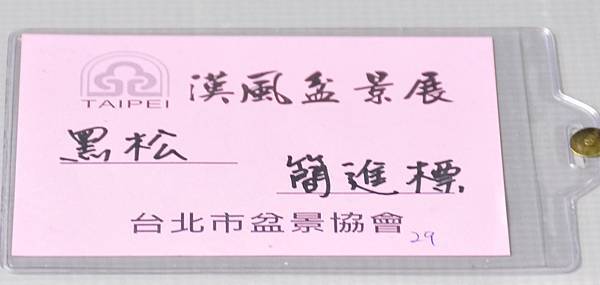 TAIPEI 漢風盆景展
黑松
簡進標
台北市盆景協會
29